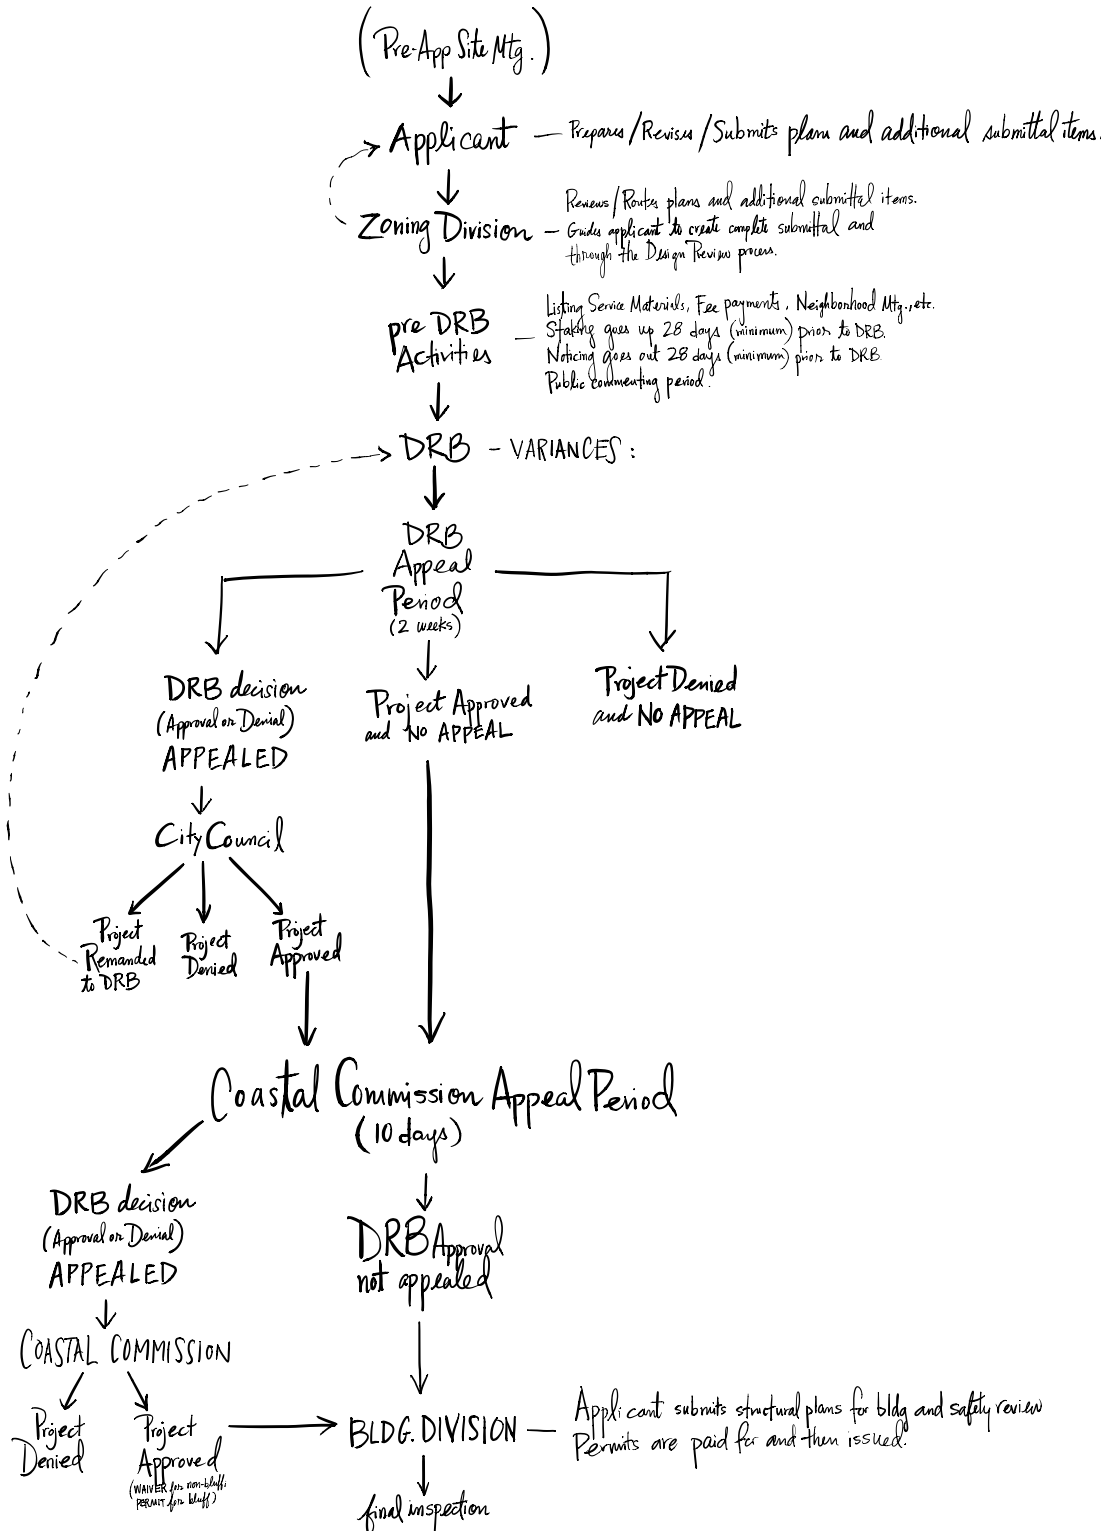 (Pre-App Site Mtg.)
Applicant — Prepares/Revises/Submits plans and additional submittal items.
Zoning Division —
Reviews/Routes plans and additional submittal items.
Guides applicant to create complete submittal and
through the Design Review process.
pre DRB
Activities —
Listing Service Materials, Fee payments, Neighborhood Mtg., etc.
Staking goes up 28 days (minimum) prior to DRB.
Noticing goes out 28 days (minimum) prior to DRB
Public commenting period.
DRB - VARIANCES:
DRB
Appeal
Period
(2 weeks)
DRB decision
(Approval or Denial)
APPEALED
Project Approved
and NO APPEAL
Project Denied
and NO APPEAL
City Council
Project
Remanded
to DRB
Project
Denied
Project
Approved
Coastal Commission Appeal Period
(10 days)
DRB decision
(Approval or Denial)
APPEALED
DRB Approval
not appealed
COASTAL COMMISSION
Project
Denied
Project
Approved
(WAIVER for non-bluff;
PERMIT for bluff)
BLDG. DIVISION —
Applicant submits structural plans for bldg and safety review
Permits are paid for and then issued.
final inspection